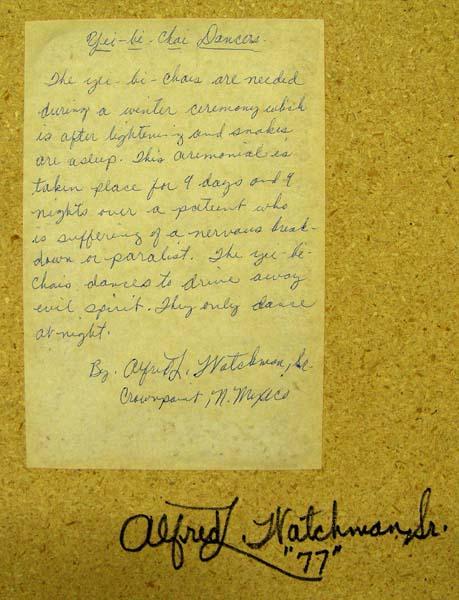 Yei-bi-chai Dancers.
The yei-bi-chais are needed
during a winter ceremony which
is after lightening and snakes
are asleep. This ceremonial is
taken place for 9 days and 9
nights over a patient who
is suffering of a nervous break-
down or paralist. The yei-be-
chais dances to drive away
evil spirit. They only dance
at night.
By. Alfred L. Watchman, Sr.
Crownpoint, N. Mexico
Alfred L. Watchman, Sr.
"77"